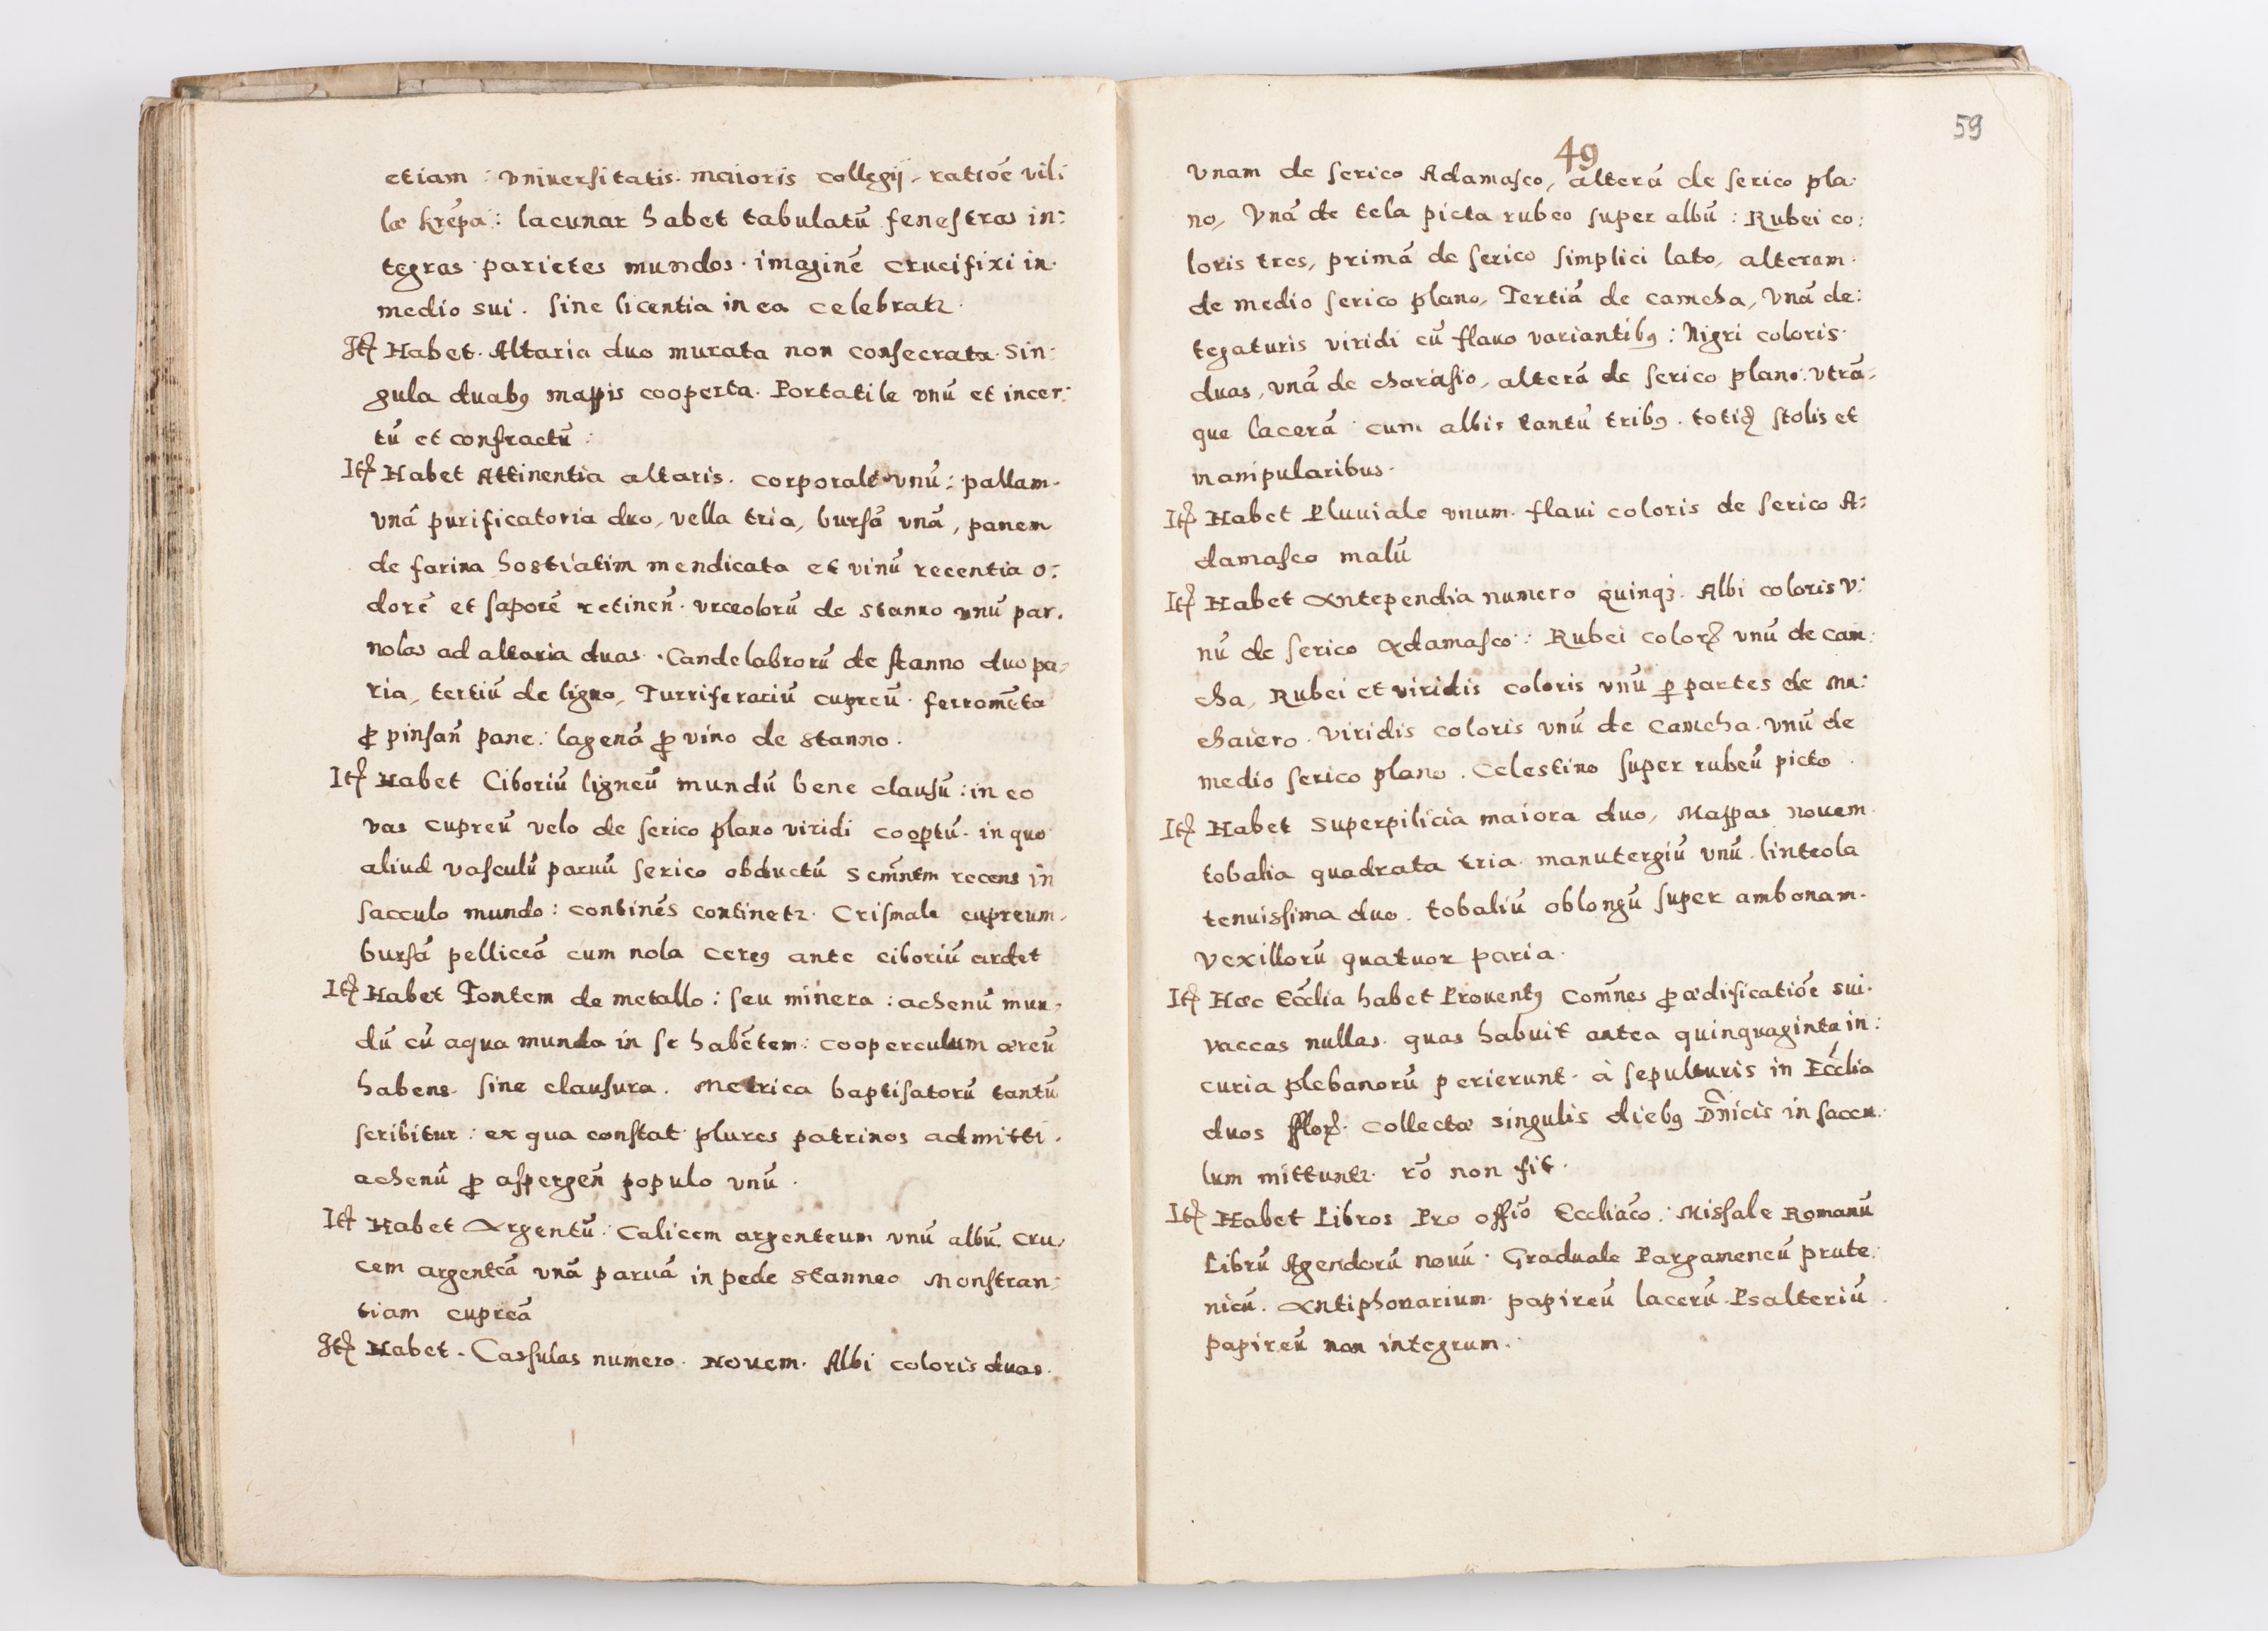 etiam : Vniuersitatis. maioris collegij, ratioē vil:
læ krẽpa : lacunar habet tabulatũ fenestras in:
tegras parietes mundos. imaginẽ crucifixi in
medio sui. sine licentia in ea celebratꝛ.
Itꝫ Habet. Altaria duo murata non consecrata. Sin:
gula duabꝰ mappis cooperta. Portatile vnũ et incer:
tũ et confractũ :
Itꝫ Habet Attinentia altaris. corporale vnũ : pallam.
vnã purificatoria duo, vella tria, bursã vnã, panem
de farina hostiatim mendicata et vinũ recentia o:
dorẽ et saporẽ retineñ. vrceolorũ de stanno vnũ par.
nolas ad altaria duas. Candelabrorũ de stanno duo pa:
ria, tertiũ de ligno, Turriferariũ cupreũ. ferromẽta
ꝓ pinsañ pane: lagenã ꝓ vino de stanno.
Itꝫ Habet Ciboriũ ligneũ mundũ bene clausũ : in eo
vas cupreũ velo de serico plano viridi cooꝑtũ. in quo
aliud vasculũ paruũ serico obductũ Scm̃ntm recens in
sacculo mundo : continẽs continetꝛ. Crismale cupreum,
bursã pelliceã cum nola cereꝰ ante ciboriũ ardet
Itꝫ Habet Fontem de metallo : seu minera : achenũ mun,
dũ cũ aqua munda in se habẽtem : cooperculum æreũ
habens. sine clausura. Metrica baptisatorũ tantũ
scribitur : ex qua constat plures patrinos admitti.
achenũ ꝓ aspergeñ populo vnũ.
Itꝫ Habet Argentũ : Calicem argenteum vnũ albũ. cru,
cem argenteã vnã paruã in pede stanneo Monstran:
tiam cupreã
Itꝫ Habet. Cassulas numero. Nouem. Albi coloris duas.
49
59
vnam de serico Adamasco, alterã de serico pla:
no, Vnã de tela picta rubeo super albũ : Rubei co:
loris tres, primã de serico simplici lato, alteram.
de medio serico plano, Tertiã de camcha, Vnã de:
tegaturis viridi cũ flauo variantibꝰ : Nigri coloris.
duas, vnã de charasio, alterã de serico plano: vtrã,
que lacerã cum albis tantũ tribꝰ. totidꝫ stolis et
manipularibus.
Itꝫ Habet Pluuiale vnum. flaui coloris de serico A:
damasco malũ
Itꝫ Habet Antependia numero quinqꝫ. Albi coloris v:
nũ de serico Adamasco : Rubei colorꝫ vnũ de cam:
cha, Rubei et viridis coloris vnũ ꝑ partes de mu:
chaiero. viridis coloris vnũ de camcha. vnũ de
medio serico plano. Celestino super rubeũ picto.
Itꝫ Habet Superpilicia maiora duo, Mappas nouem
tobalia quadrata tria. manutergiũ vnũ. linteola
tenuissima duo. tobaliũ oblongũ super ambonam.
vexillorũ quatuor paria.
Itꝫ Hæc Ecc̃lia habet Prouentꝰ Com̃nes ꝓ ædificatioẽ sui.
vaccas nullas. quas habuit antea quinquaginta in:
curia plebanorũ perierunt. à sepulturis in Ecc̃lia
duos fflorꝫ. Collectæ singulis diebꝰ Dñicis in saccu:
lum mittuntꝛ. rõ non fit.
Itꝫ Habet Libros Pro offĩo Eccliãco : Missale Romanũ
Librũ Agendorũ nouũ. Graduale Pargameneũ prute:
nicũ. Antiphonarium papireũ lacerũ. Psalteriũ.
papireũ non integrum.